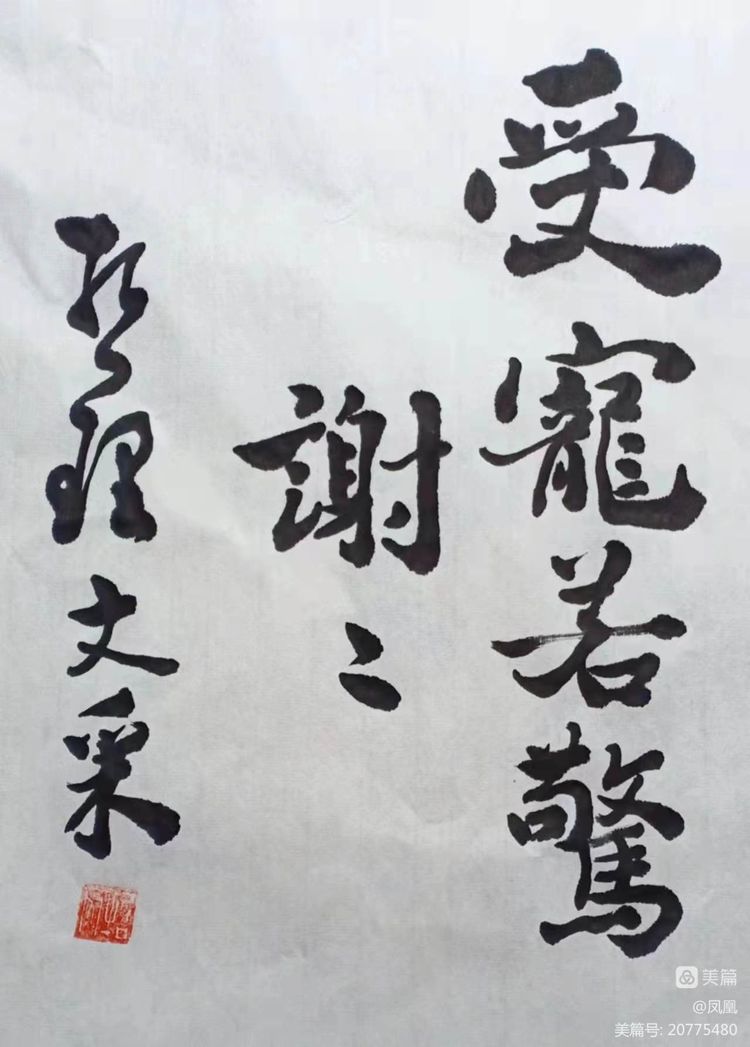 受寵若驚
謝〻
理文采
美篇
@凤凰
美篇号: 20775480